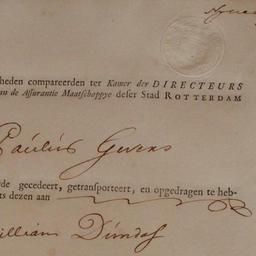 heden compareerden ter Kamer der DIRECTEURS
an de Assurantie Maatschappye deser Stad ROTTERDAM
Paulus Gevers
rde gecedeert, getransporteert, en opgedragen te heb-
ts dezen aan
William Dundas